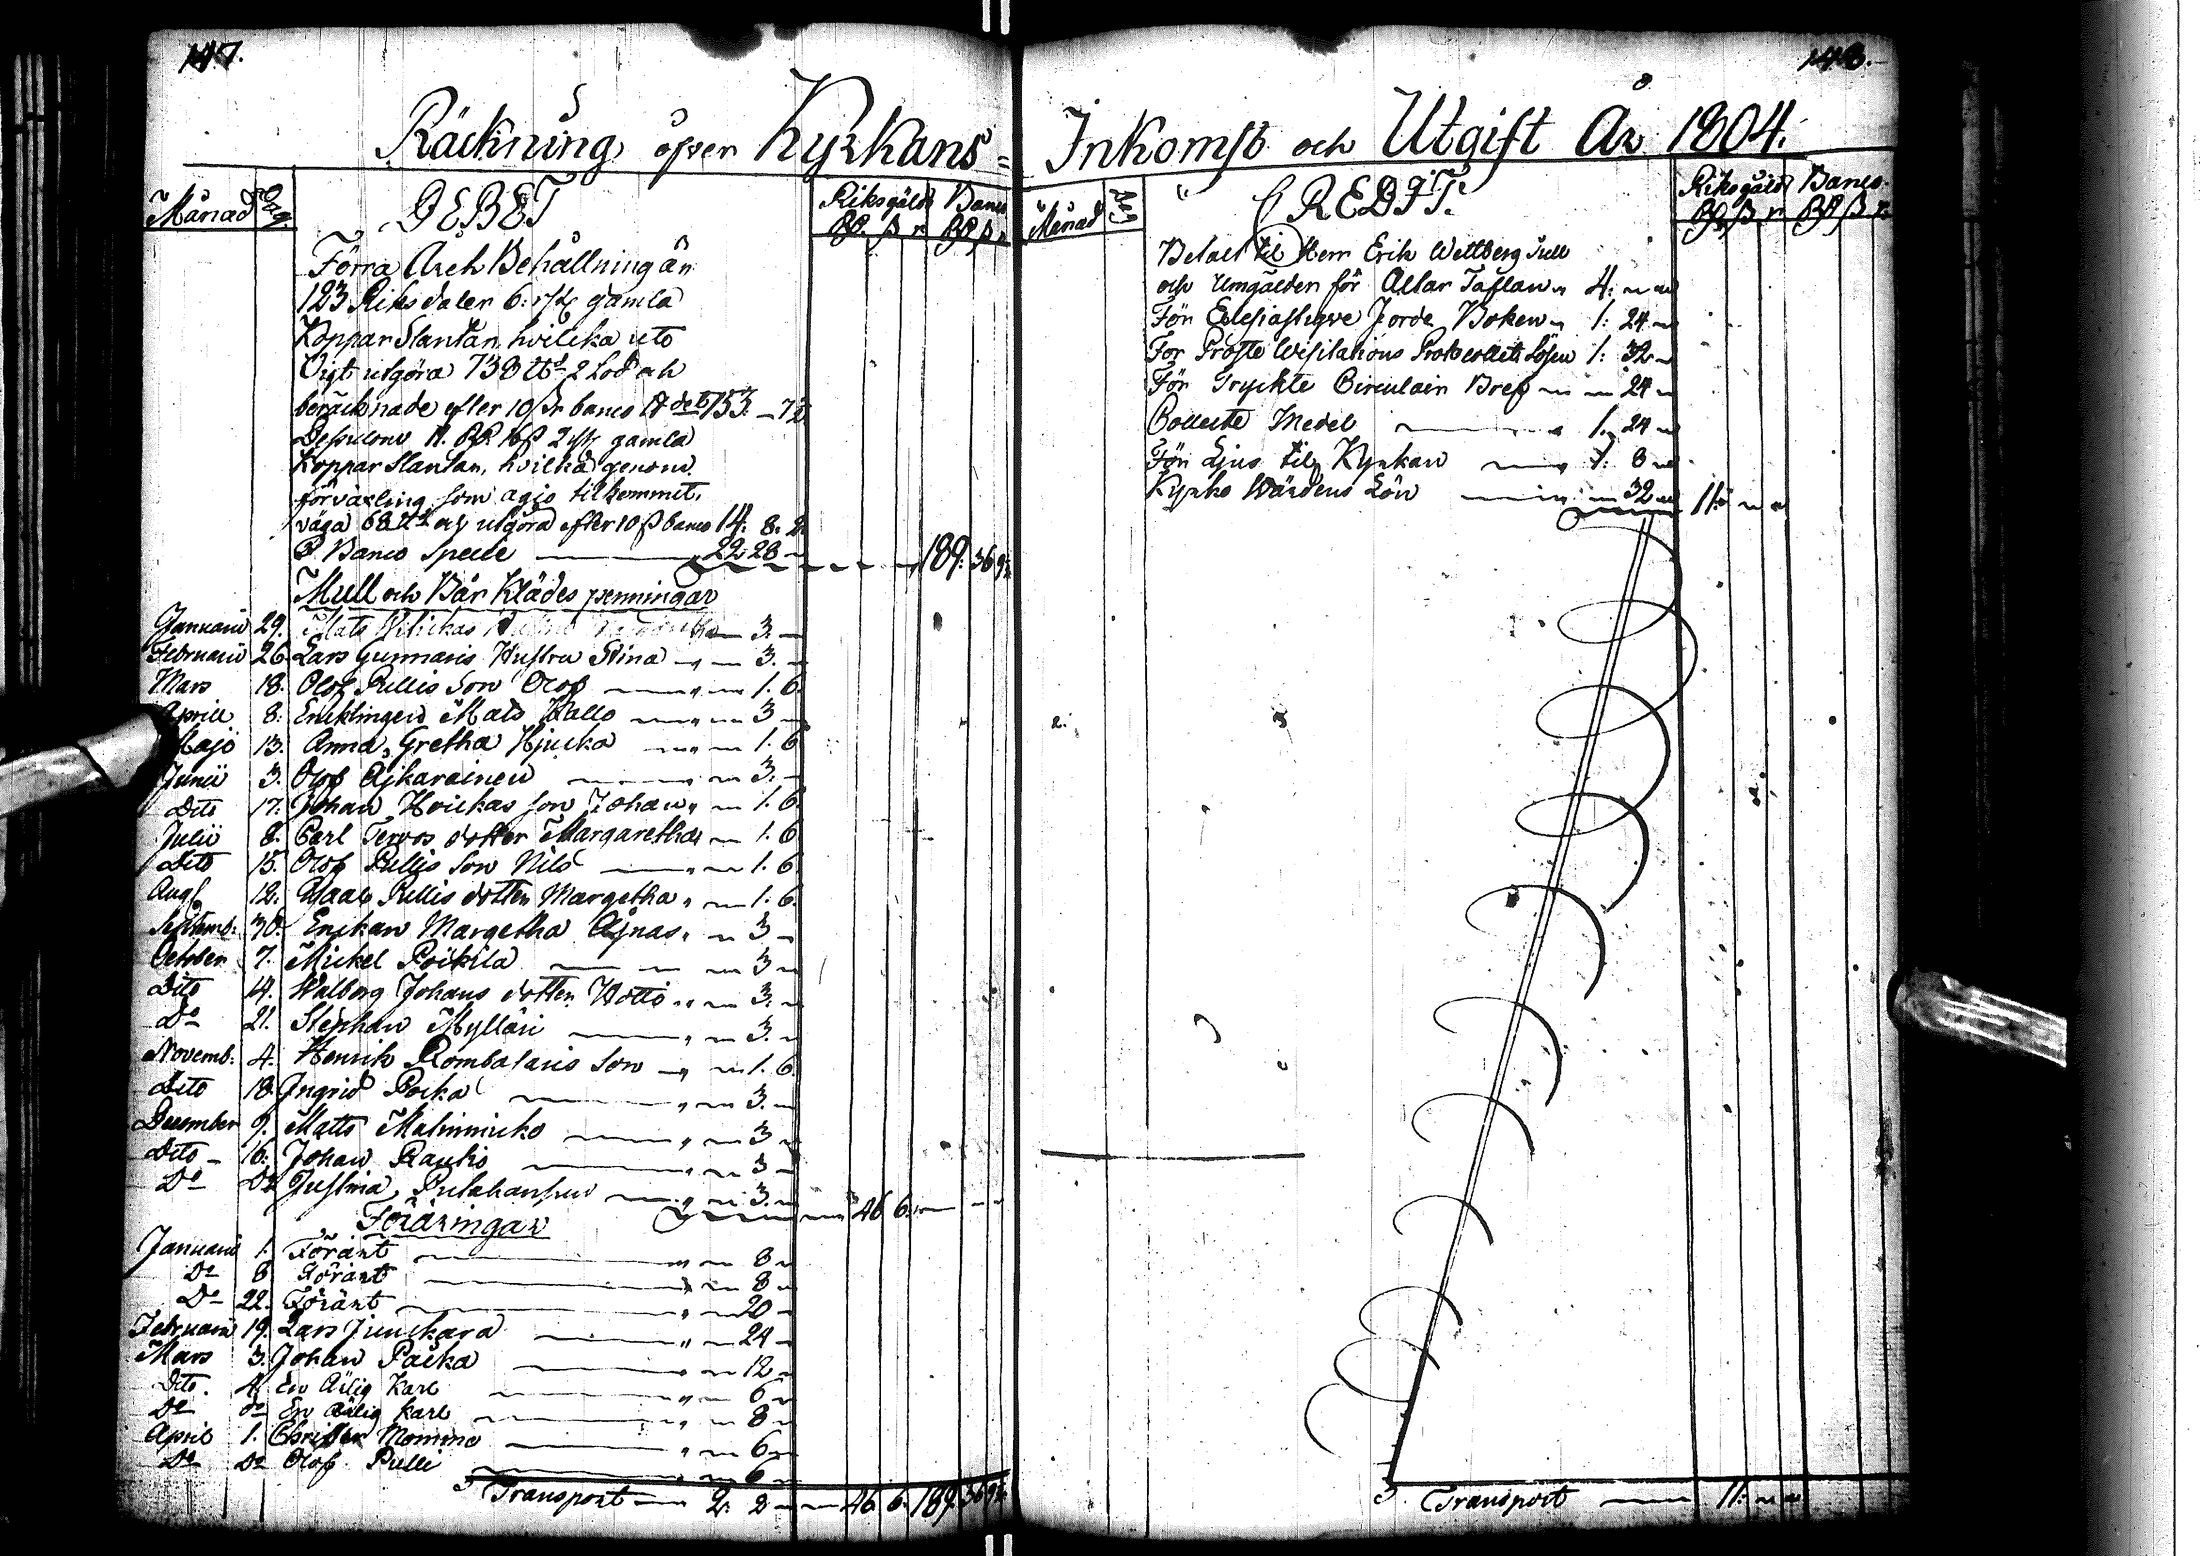 147.
Räckning öfver Kyrkans=
Månad Dag DEBET Riksgäld Banco
Rd. ß r Rd ß r
Förra Åreh Behållning än
123 Riksdaler 6: gamla
Koppar Slantar, hvilcka uto
Vigt utgöra 738 2 Lod och
beräcknade efter 10 ß banco 153. 7
Dessutom 11. Rd. 16 ß 2 gamla
Koppar Slantar, hvilka genom
förväxling som agio tilkommit,
väga 68 och utgöra efter 10 ß banco 14. 8. 2
Banco Specie 22 28 189. 36 9
Mull och Bår Klädes penningar
Januarii 29. Mats 3.
Februarii 26 Lars Gunnaris Hustru Stina 3.
Mars 18. Olof Pullis Son Olof 1. 6
Aprill 8. Enklingen Mats Kallo 3
Majo 13. Anna Gretha Hjucka 1. 6
Junii 3. Olof Äjkarainen 3.
Dito 17. Johan Hvickas son Johan 1. 6
Julii 8. Carl Tervos dotter Margaretha 1. 6
Dito 15. Olof Pullis Son Nils 1. 6
Aug 12. Pullis dotter Margetha 1. 6
Septemb: 30. Enckan Margetha Äjnas 3
October 7. Mickel Poikila 3
Dito 14. Walborg Johans dotter Hotti 3.
Do 21. Stephan Mylläri 3.
Novemb: 4. Henrik Rombalaris Son 1. 6
Dito 18 Ingrid Pocka 3.
December 9. Matts Malinniucko 3
Dito 16. Johan Rautio 3
Do Do Justina 3. 46 6
Föräringar
Januarii 1. Föränt 8
Do 8 Föränt 8
Do 22. Föränt 20
Februarii 19. Lars Junckara 24
Mars 3. Johan Packa 12
Dito. 4. En Ärlig Karl 6
Do do En ärlig karl 8
April 1. Christer Mommo 6
Do Do Olof Pulli 6
Transport 2: 2 46 6. 189 36 9
148.
Inkomst och Utgift År 1804.
Månad Dag CREDIT. Riksgäld Banco.
Rd ß r Rd ß r
Betalt til Herr Erik Wettberg Tull
och Umgälder för Altar Taflan 4:
För Eclesiastique Jorde Boken 1: 24
För Prosté Visitations Protocollets Lösen 1: 32
För Tryckte Circulair Bref 24
Collecte Medel 1. 24
För Ljus til Kyrkan 1: 8
Kyrko Wärdens Lön 32 11:
Transport 11: